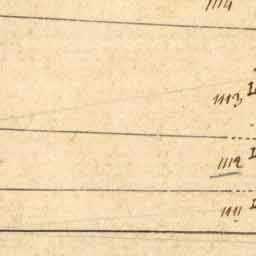 1114
1113 L
1112 L
1111 L